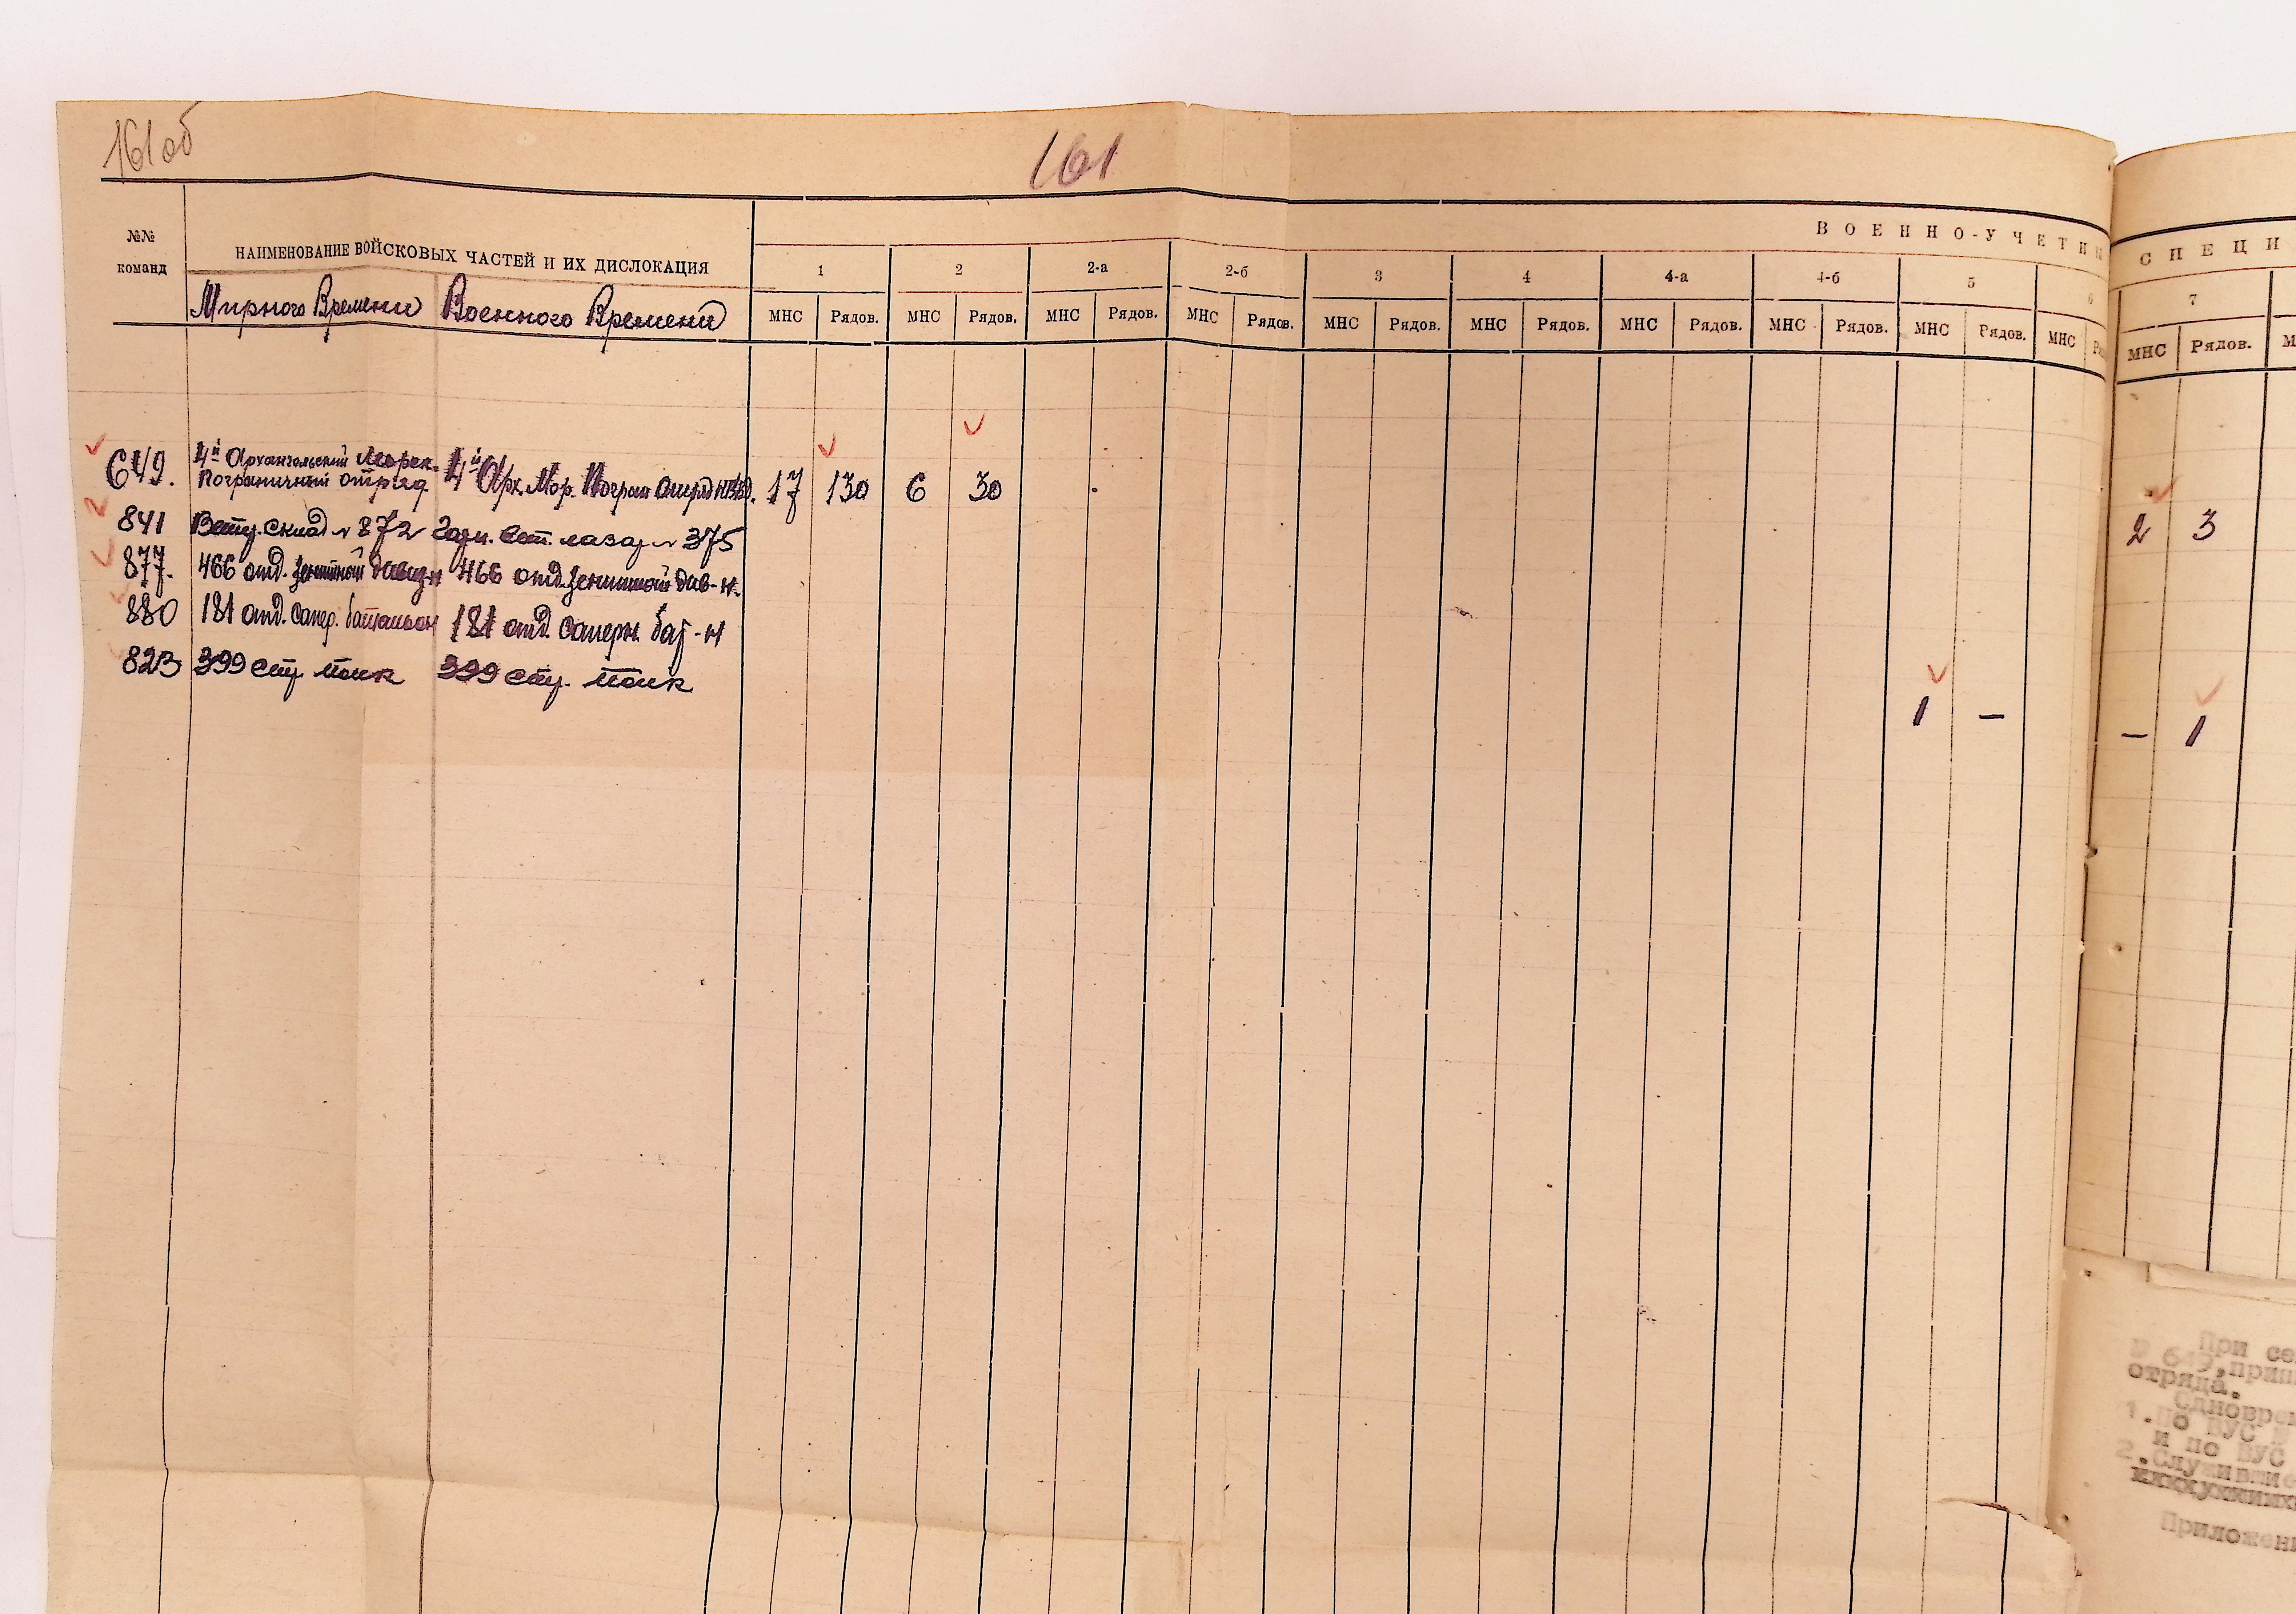 161об
161
№№ команд
НАИМЕНОВАНИЕ ВОЙСКОВЫХ ЧАСТЕЙ И ИХ ДИСЛОКАЦИЯ
Мирного Времени Военного Времени
ВОЕННО-УЧЕТН
СПЕЦИ
1 2 2-а 2-б 3 4 4-а 4-б 5 6 7
МНС Рядов. МНС Рядов. МНС Рядов. МНС Рядов. МНС Рядов. МНС Рядов. МНС Рядов. МНС Рядов. МНС Рядов. МНС МНС Рядов.
649. 4й Архангельский Морск. 4й Арх. Мор. Погран Отряд НКВД. 17 130 6 30 2 3
Пограничный отряд
841 Ветер. склад № 872 Гарн. вет. лазар № 375
877. 466 отд. Зенитный дивиз-н 466 отд. Зенитный див-н.
880 181 отд. сапер. батальон 181 отд. саперн. бат-н
823 399 стр. полк 399 стр. полк 1 – – 1
При се
№ 649, прип
отряда.
Одноврем
1. по ВУС №
и по ВУС
2. Служивше
Приложени